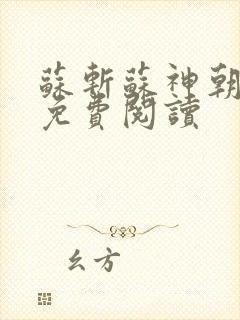 蘇斬蘇神朝
免費閱讀
幺方